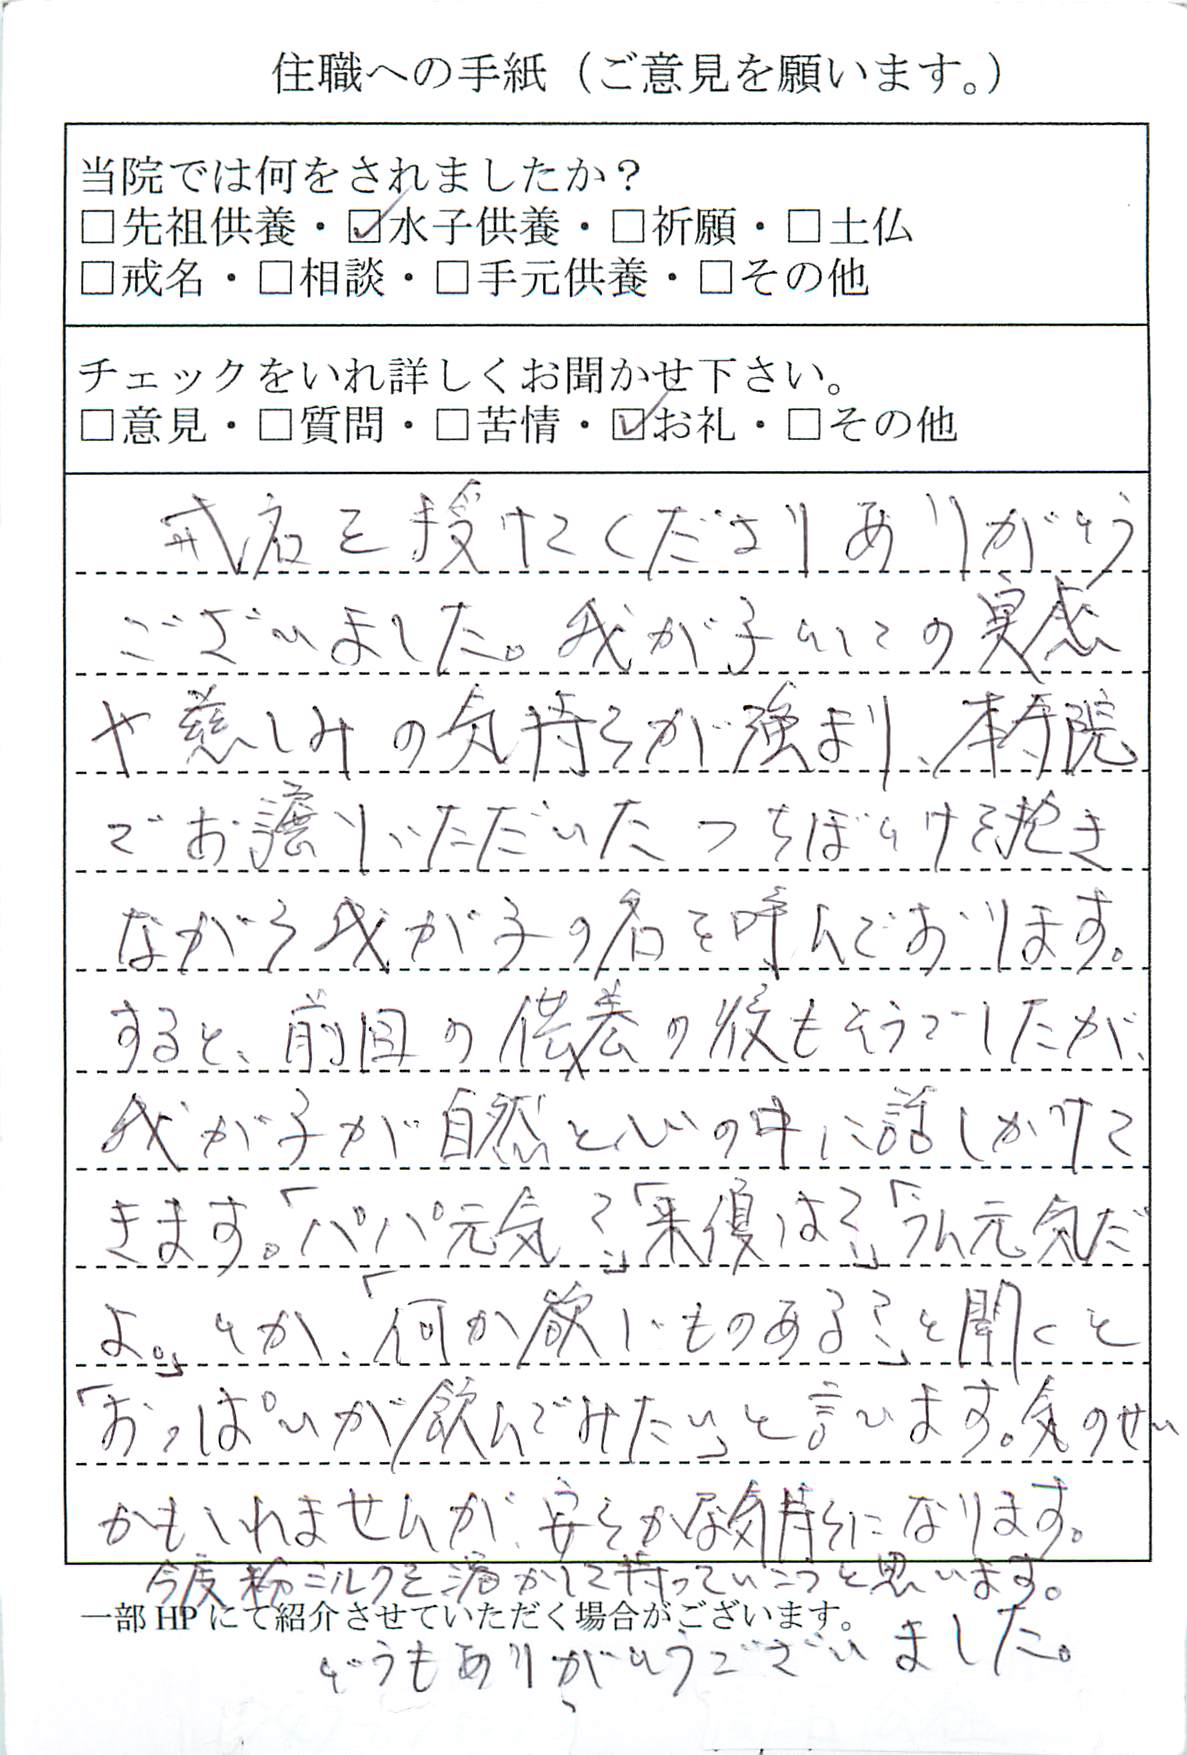 住職への手紙（ご意見を願います。）
当院では何をされましたか？
□先祖供養・☑水子供養・□祈願・□土仏
□戒名・□相談・□手元供養・□その他
チェックをいれ詳しくお聞かせ下さい。
□意見・□質問・□苦情・☑お礼・□その他
戒名を授けてくださりありがとう
ございました。我が子としての実感
や慈しみの気持ちが強まり、本寿院
でお譲りいただいたつちぼとけを抱き
ながら我が子の名を呼んでおります。
すると、前回の供養の後もそうでしたが、
我が子が自然と心の中に話しかけて
きます。「パパ元気？」「来優は？」「うん元気だ
よ。」とか、「何か欲しいものある？」と聞くと
「おっぱいが飲んでみたい」と言います。気のせい
かもしれませんが、安らかな気持ちになります。
今度粉ミルクを溶かして持っていこうと思います。
一部HPにて紹介させていただく場合がございます。
どうもありがとうございました。